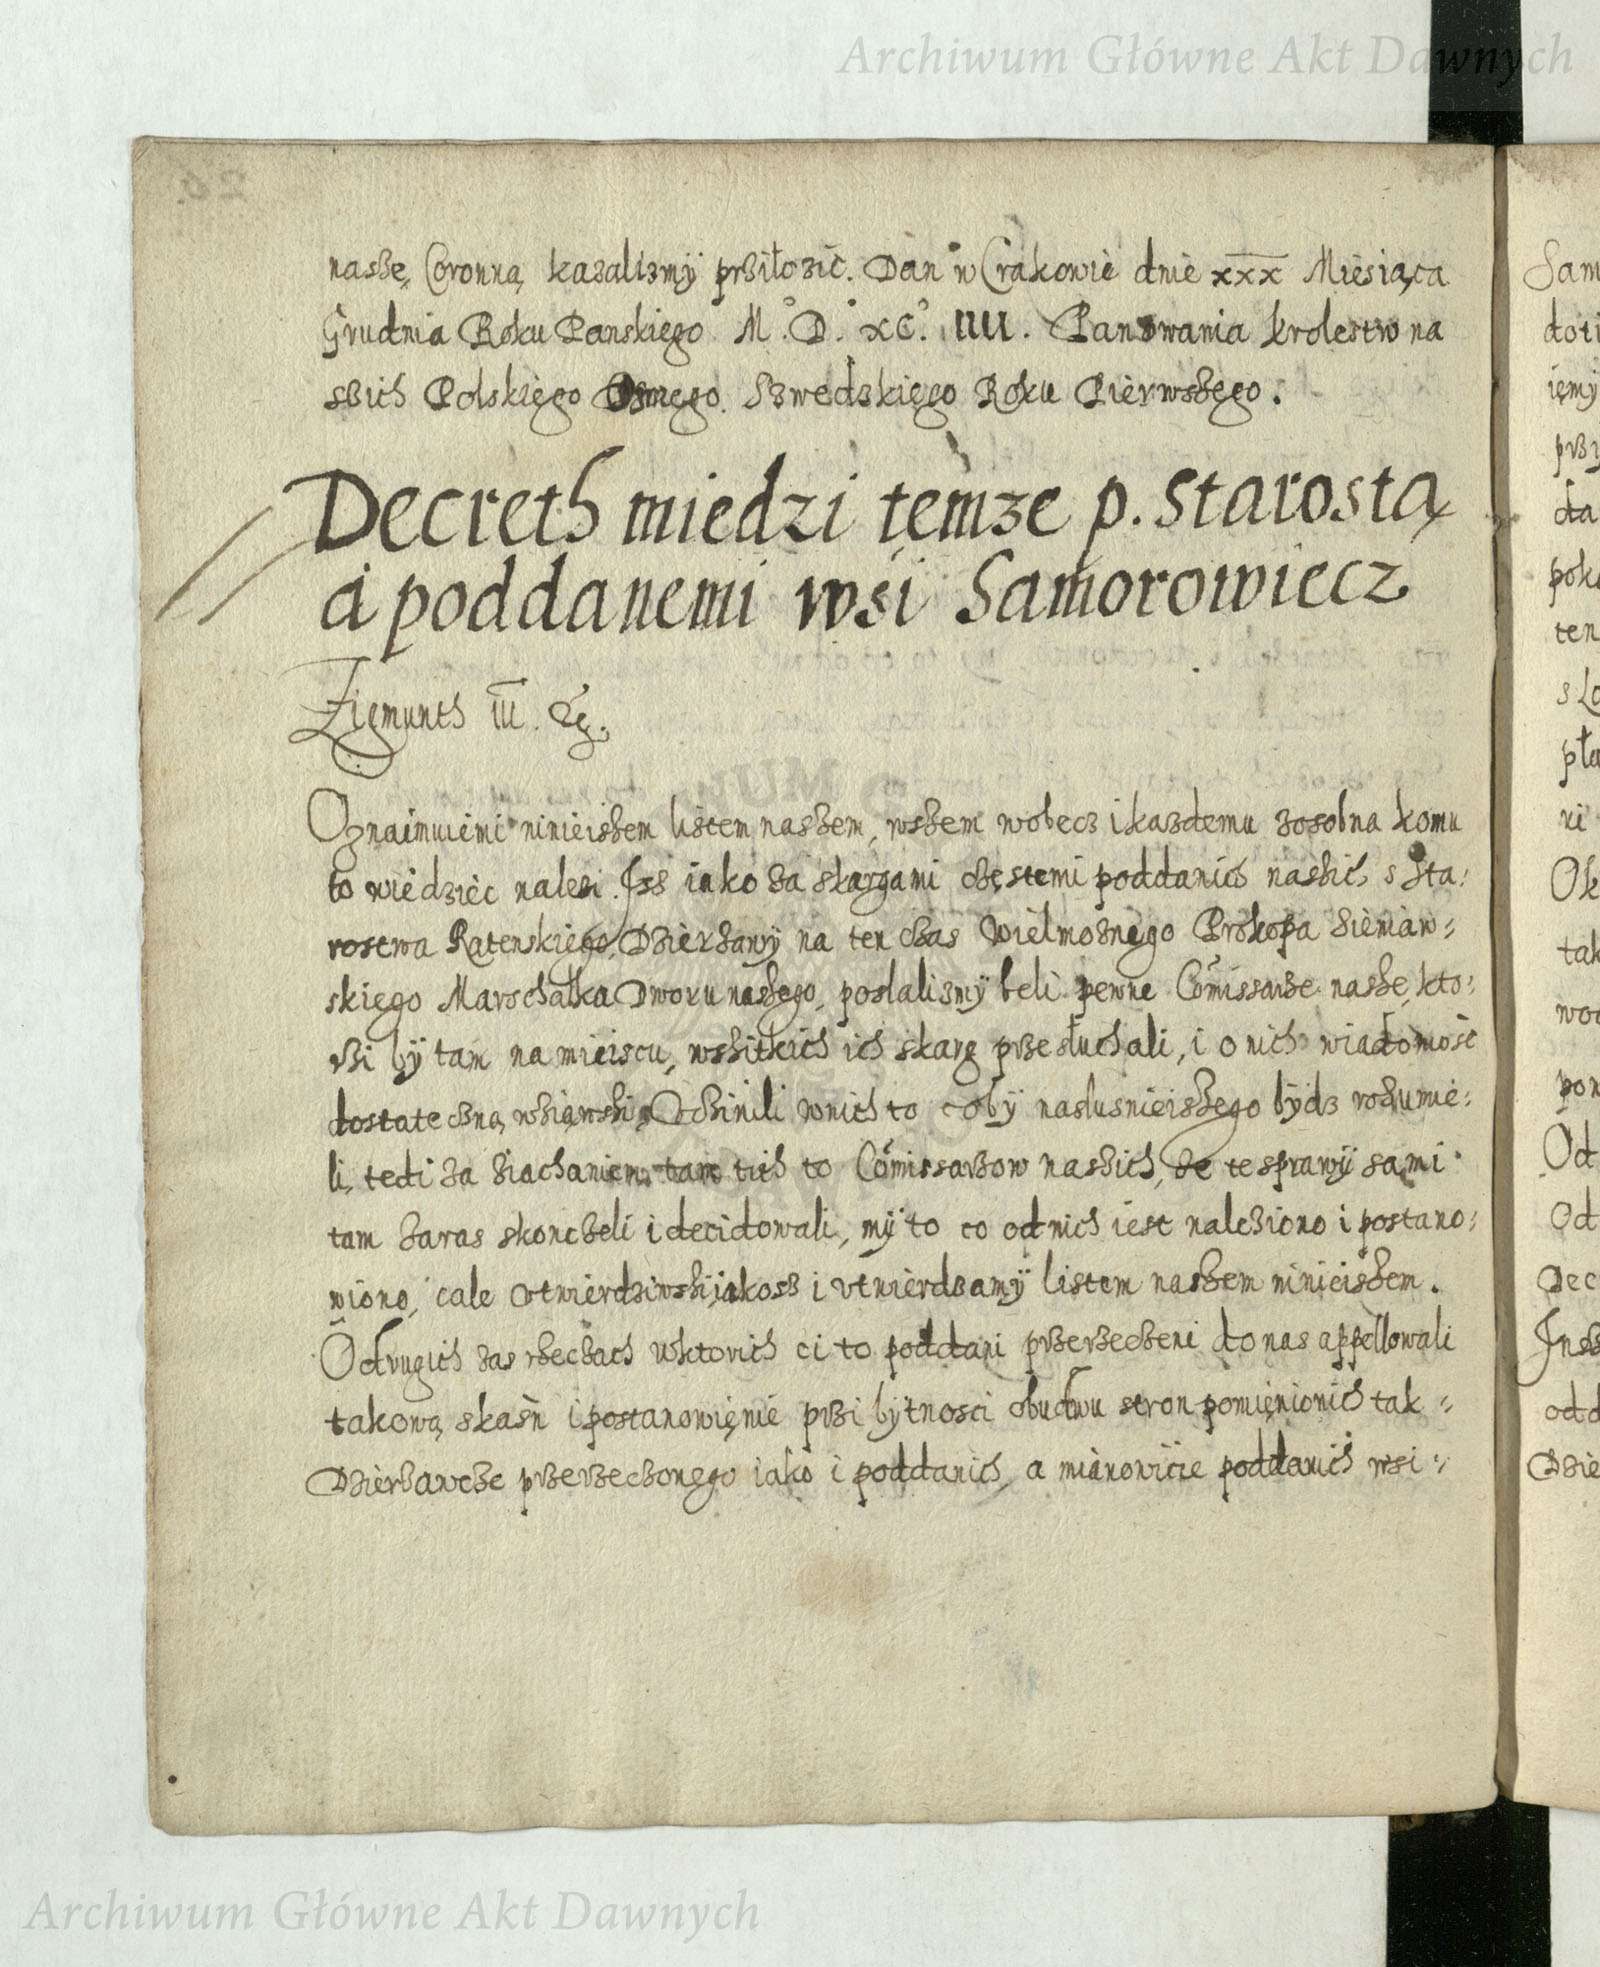 Archiwum Główne Akt Dawnych
naszę Coronną kazalismÿ przilozic. Dan w Crakowie dnie xxx Miesiąca
Grudnia Roku Panskiego M.° D.° xc.° IIII. Panowania krolestw na
szich Polskięgo Osmego. Szwedskięgo Roku Pierwszego.
Decreth miedzi temze p. Starostą
a poddanemi wsi Samorowiecz
Zigmunth III. &c.
Oznaimuiemi ninieiszem listem naszem, wszem wobecz i kazdemu zosobna komu
to wiedziec nalezi. Isz iako za skargami częstemi poddanich naszich s Sta:
rostwa Ratenskięgo, Dzierzawÿ na ten czas Wielmoznego Prokopa Sieniaw:
skięgo Marschałka Dworu naszego, poslalismÿ beli pewne Comissarze nasze, kto:
rzi bÿ tam na mieiscu, wszitkich ich skarg przesłuchali, i o nich wiadomosc
dostateczną wziąwszi, Uczinili wnich to coby naslusnieiszego bÿdz rozumie:
li, tedi za ziachaniem tam tich to Comissarzow naszich, ze te sprawÿ sami
tam zaras skonczeli i decidowali, mÿ to co od nich iest nalezიono i postano:
wiono, cale utwierdziwszi, iakosz i utwierdzamÿ listem naszem ninieiszem.
O drugich zas rzeczach wktorich ci to poddani przerzeczeni do nas appellowali
takową skasń i postanowięnie przi bÿtnosci obudwu stron pomięnionich tak:
Dzierzawcze przerzeczonego iako i poddanich, a mianowicie poddanich wsi:
Sam
doti
ięmÿ
przi
da
poka
ten
s Lo
pła
ki
Ok
tak
woo
pon
Od
Od
Dec
Insz
odd
Dzie
Archiwum Główne Akt Dawnych